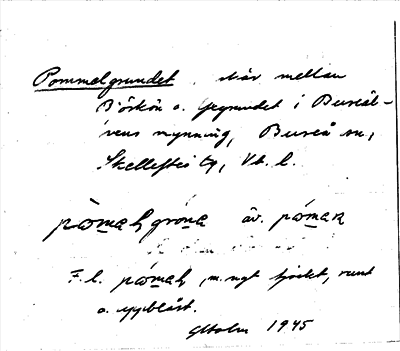 Pommelgrundet, skär mellan
Björkön o. Gegrundet i Bureäl-
vens mynning, Bureå sn,
Skellefteå tg, Vb. l.
pämahgrôna äv. pämar
F. l. pämah, n. ngt tjockt, runt
o. uppblåst.
GHolm 1945